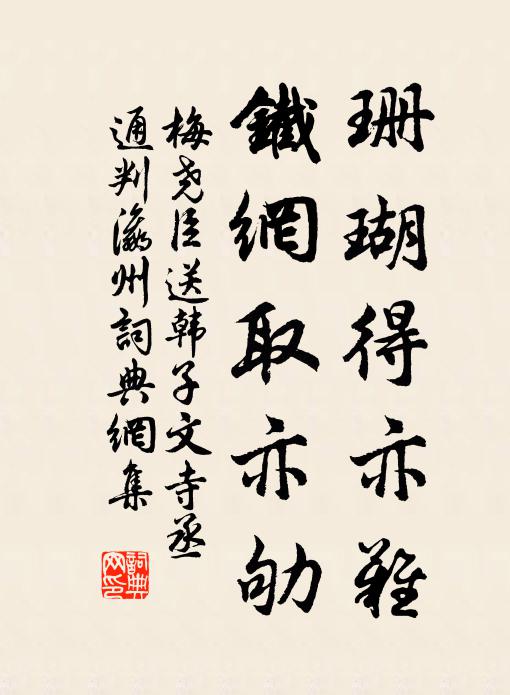 珊瑚得亦難
鐵網取亦劬
梅尧臣送韩子文寺丞
通判瀛州詞典網集
詞典
网印